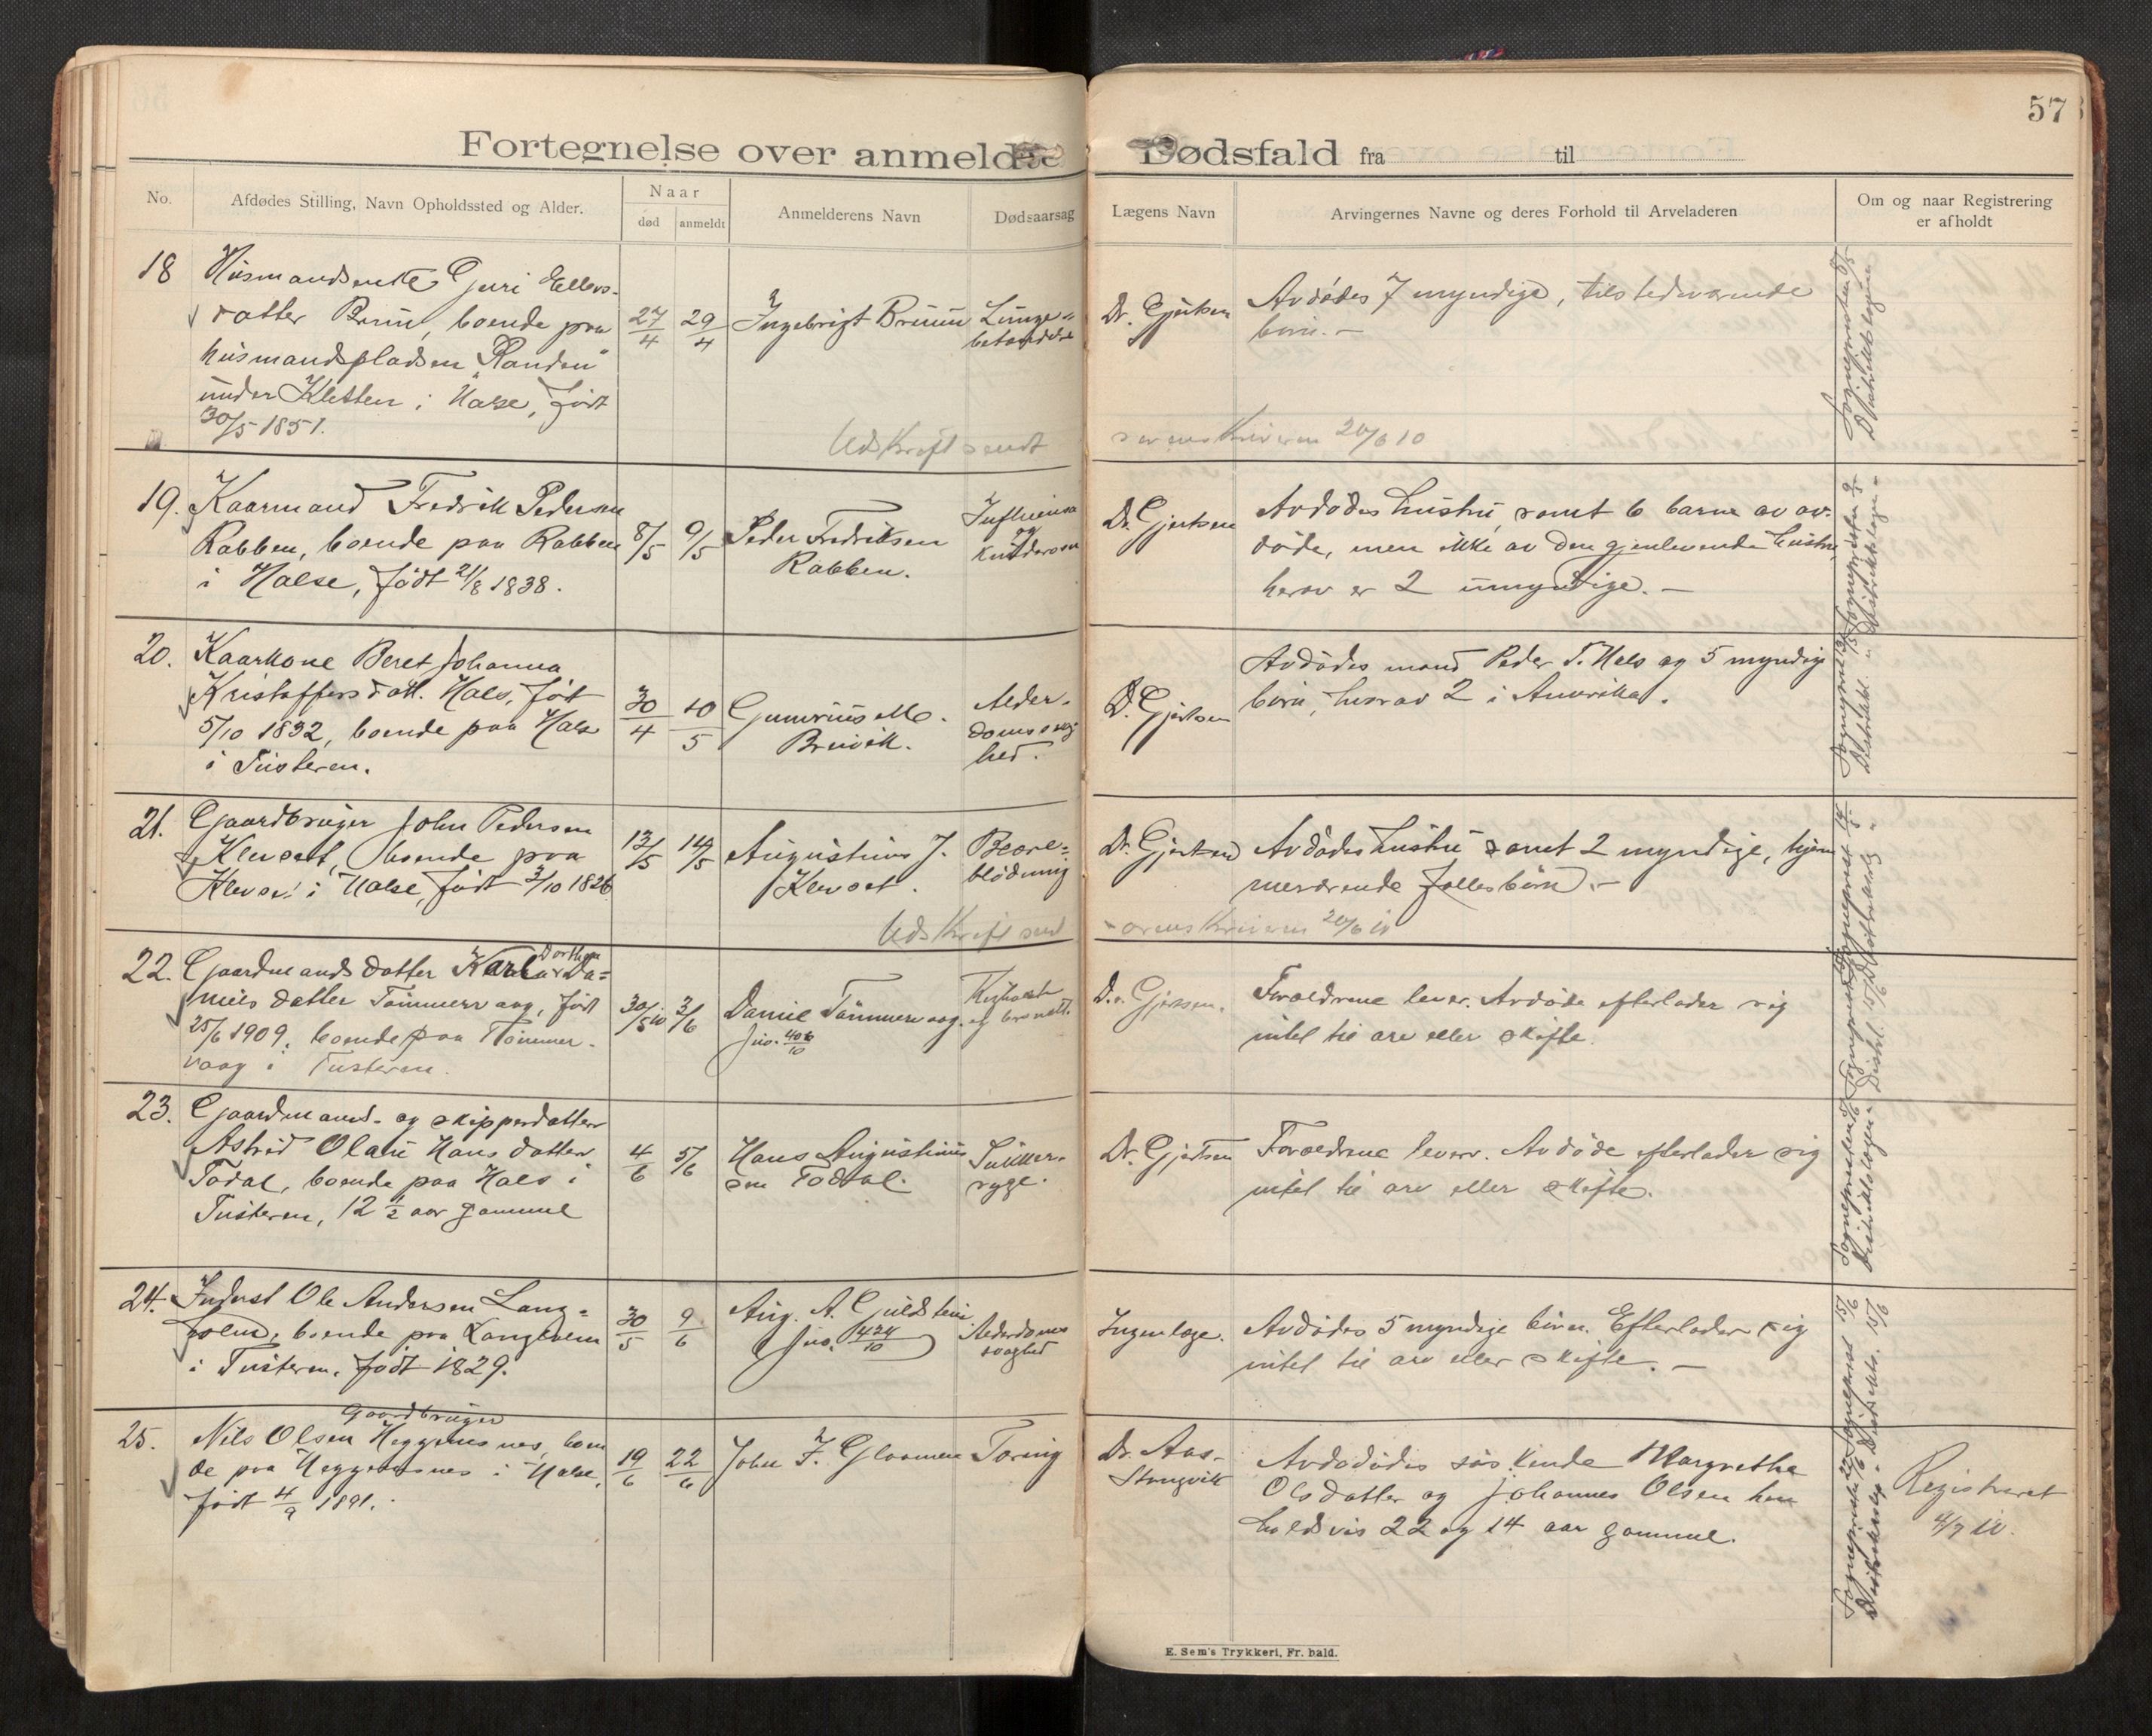 57
Fortegnelse over anmeldte Dødsfald fra til
No.
Afdødes Stilling, Navn Opholdssted og Alder.
Naar
død
anmeldt
Anmelderens Navn
Dødsaarsag
Lægens Navn
Arvingernes Navne og deres Forhold til Arveladeren
Om og naar Registrering
er afholdt
18
Husmandsenke Guri Ellevs-
datter Bruun, boende paa
husmandspladsen "Randen"
under Kletten i Halse, født
30/5 1851.
27/4
29/4
Ingebrigt Bruun
Lunge-
betændelse
Dr. Gjertsen
Avdødes 7 myndige, tilstedværende
børn.-
Udskrift sendt
sorenskriveren 20/6 10
19.
Kaarmand Fredrik Pedersen
Rabben, boende paa Rabben
i Halse, født 21/8 1838.
8/5
9/5
Peder Fredriksen
Rabben.
Influensa
og
Dr. Gjertsen
Avdødes hustru, samt 6 barn av av-
døde, men ikke av den gjenlevende hustru,
herav er 2 umyndige. -
20.
Kaarkone Beret Johanna
Kristoffersdatt. Hals, født
5/10 1832, boende paa Hals
i Tusteren.
30/4
10/5
Gunerius M.
Bruvik.
Alder-
domssvag
hed.
D. Gjertsen
Avdødes mand Peder T. Hals og 5 myndige
børn, hvorav 2 i Amerika.
21.
Gaardbruger John Pedersen
Klevset, boende paa
Klevset i Halse, født 3/10 1826
13/5
14/5
Augustinus J.
Klevset.
blødning
Dr. Gjertsen
Avdødes hustru samt 2 myndige, hjem
meværende fællesbørn.-
Udskrift sendt
sorenskriveren 20/6 10
22.
Dorthea
Gaardmandsdatter Karla Da-
niels datter Tømmervaag, født
25/6 1909, boende paa Tømmer-
vaag i Tusteren.
30/5 10
3/6
Daniel Tømmervaag.
Jno. 406/10
Kighoste
og bronkit.
Dr. Gjertsen.
Forældrene lever. Avdøde efterlader sig
intet til arv eller skifte.
23.
Gaardmand- og skipperdatter
Astrid Olau Hans datter
Todal, boende paa Hals i
Tusteren, 12 1/2 aar gammel
4/6
5/6
Hans Augustinus
sen Todal.
Sukker-
syge.
Dr. Gjertsen
Forældrene lever. Avdøde efterlader sig
intet til arv eller skifte.
24.
Inderst Ole Andersen Lang-
holm, boende paa Langholm
i Tusteren, født 1829.
30/5
9/6
Aug. A. Guldstein.
Jno. 424/10
Alderdoms
svaghed
Ingen læge.
Avdødes 5 myndige børn. Efterlader sig
intet til arv eller skifte. -
25.
Gaardbruger
Nils Olsen Heggemsnes, boen
de paa Heggemsnes i Halse,
født 4/9 1891.
19/6
22/6
John F. Glaamen
Tæring
Dr. Aas-
Strugvik
Avdødes søskende Margrethe
Olsdatter og Johannes Olsen hen
holdsvis 22 og 14 aar gammel.
Registreret
4/7 10.
E. Sem's Trykkeri, Fr. hald.